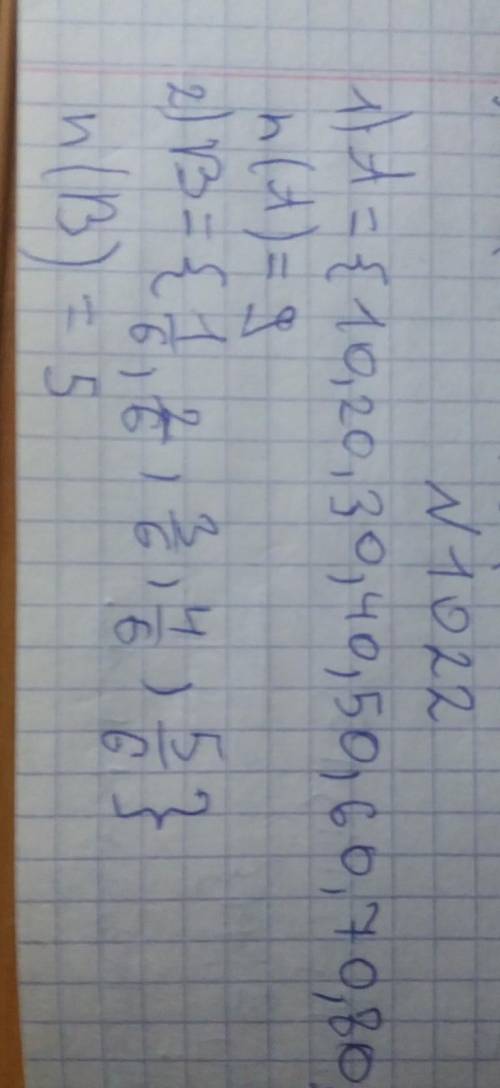 N 1022
1) A = {10,20,30,40,50,60,70,80
n(A) = 9
2) B = {1/6, 2/6, 3/6, 4/6, 5/6}
n(B) = 5